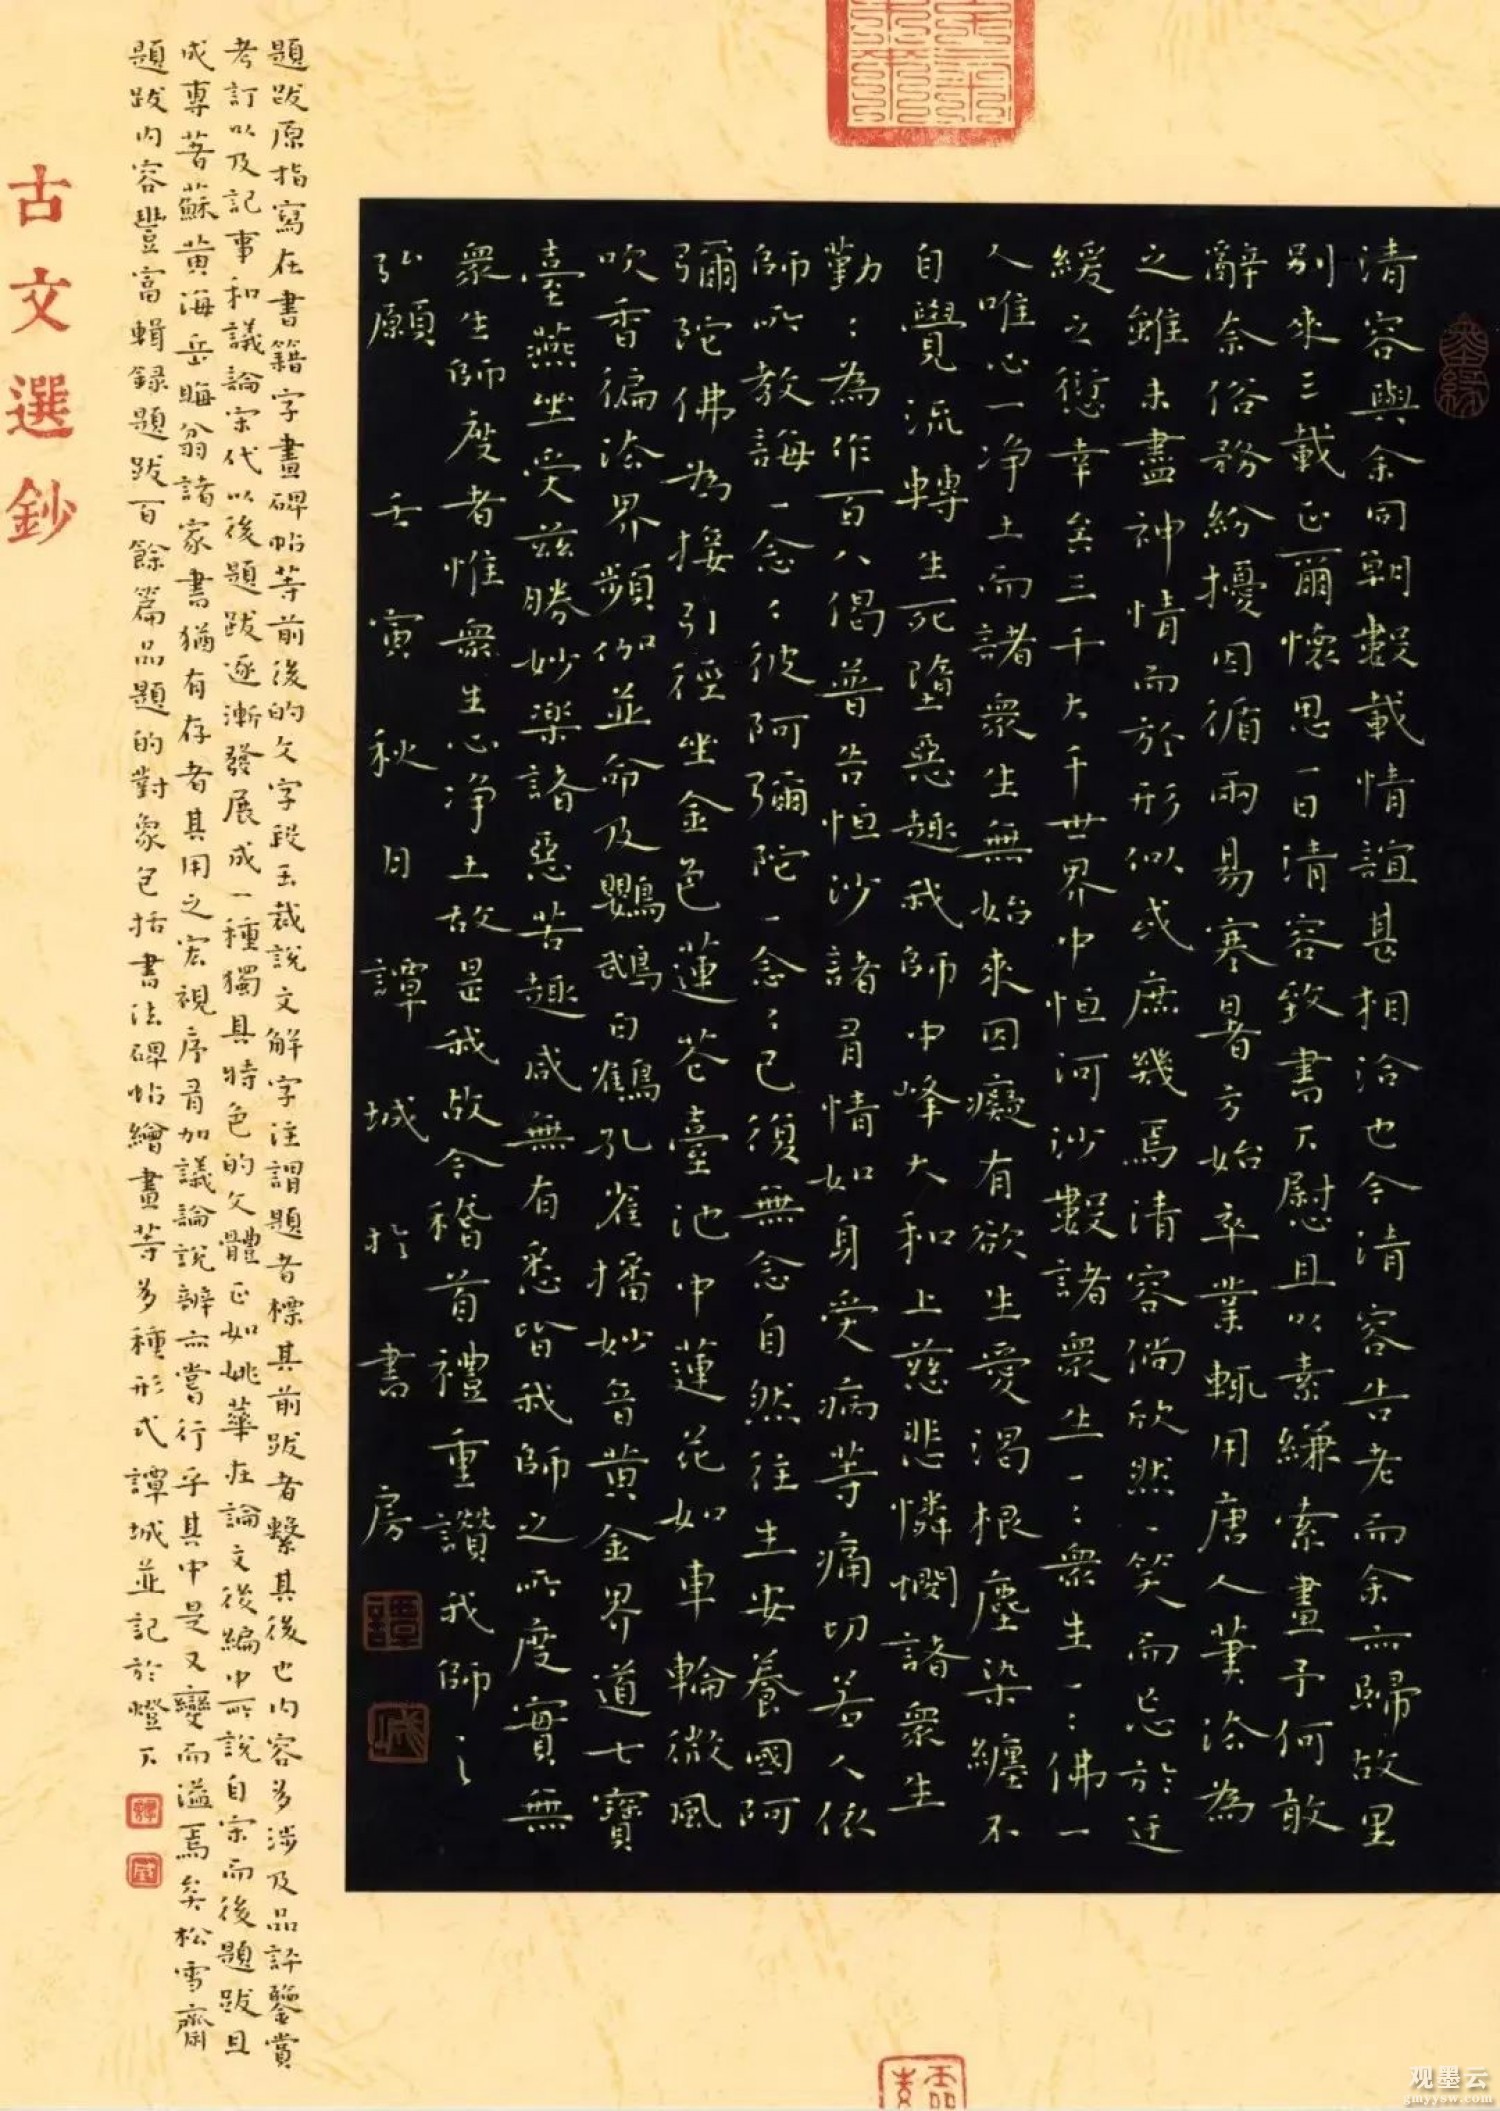 清容與余同朝數載情誼甚相洽也今清容告老而余亦歸故里
別來三載正爾懷思一日清容致書下慰且以素縑索畫予何敢
辭奈俗務紛擾因循兩易寒暑方始卒業輒用唐人筆法為
之雖未盡神情而於形似或庶幾焉清容倘欣然一笑而忘於迂
緩之愆幸矣三千大千世界中恒河沙數諸眾生一:眾生一:佛一
人唯心一淨土而諸眾生無始來因癡有欲生愛渴根塵染纏不
自覺流轉生死墮惡趣我師中峰大和上慈悲憐憫諸眾生
勤:為作百八偈普告恒沙諸有情如身受病等痛切若人依
師所教誨一念:彼阿彌陀一念:已復無念自然往生安養國阿
彌陀佛為接引徑坐金色蓮花臺池中蓮花如車輪微風
吹香徧法界頻伽並命及鸚鵡白鶴孔雀播妙音黃金界道七寶
臺燕坐受茲勝妙樂諸惡苦趣咸無有悉皆我師之所度實無
眾生師度者惟眾生心淨土故是我故今稽首禮重讚我師之
弘願 壬寅秋日譚城於書房
譚
城
題跋原指寫在書籍字畫碑帖等前後的文字段玉裁說文解字注謂題者標其前跋者繫其後也內容多涉及品評鑒賞
考訂以及記事和議論宋代以後題跋逐漸發展成一種獨具特色的文體正如姚華在論文後編中所說自宋而後題跋且
成專著蘇黃海岳晦翁諸家書猶有存者其用之宏視序有加議論說辨亦嘗行乎其中是又變而溢焉矣松雪齋
題跋內容豐富輯錄題跋百餘篇品題的對象包括書法碑帖繪畫等多種形式譚城並記於燈下
譚
城
古文選鈔
观墨云
gmyysw.com